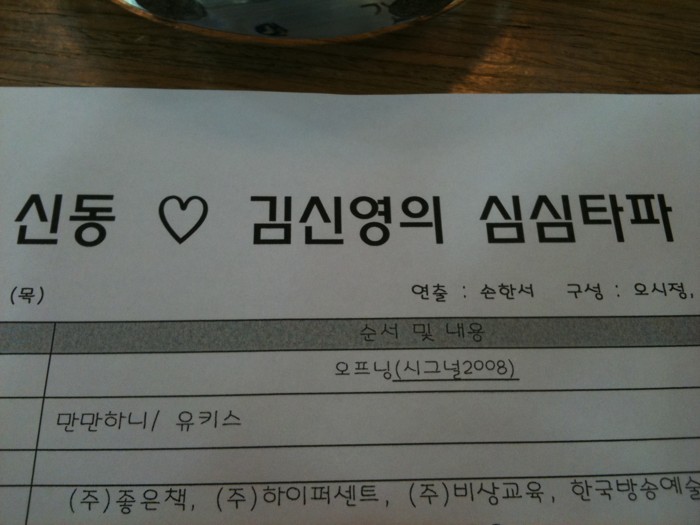 신동 ♡ 김신영의 심심타파
(목) 연출 : 손한서 구성 : 오시정,
순서 및 내용
오프닝(시그널2008)
만만하니/ 유키스
(주)좋은책, (주)하이퍼센트, (주)비상교육, 한국방송예술